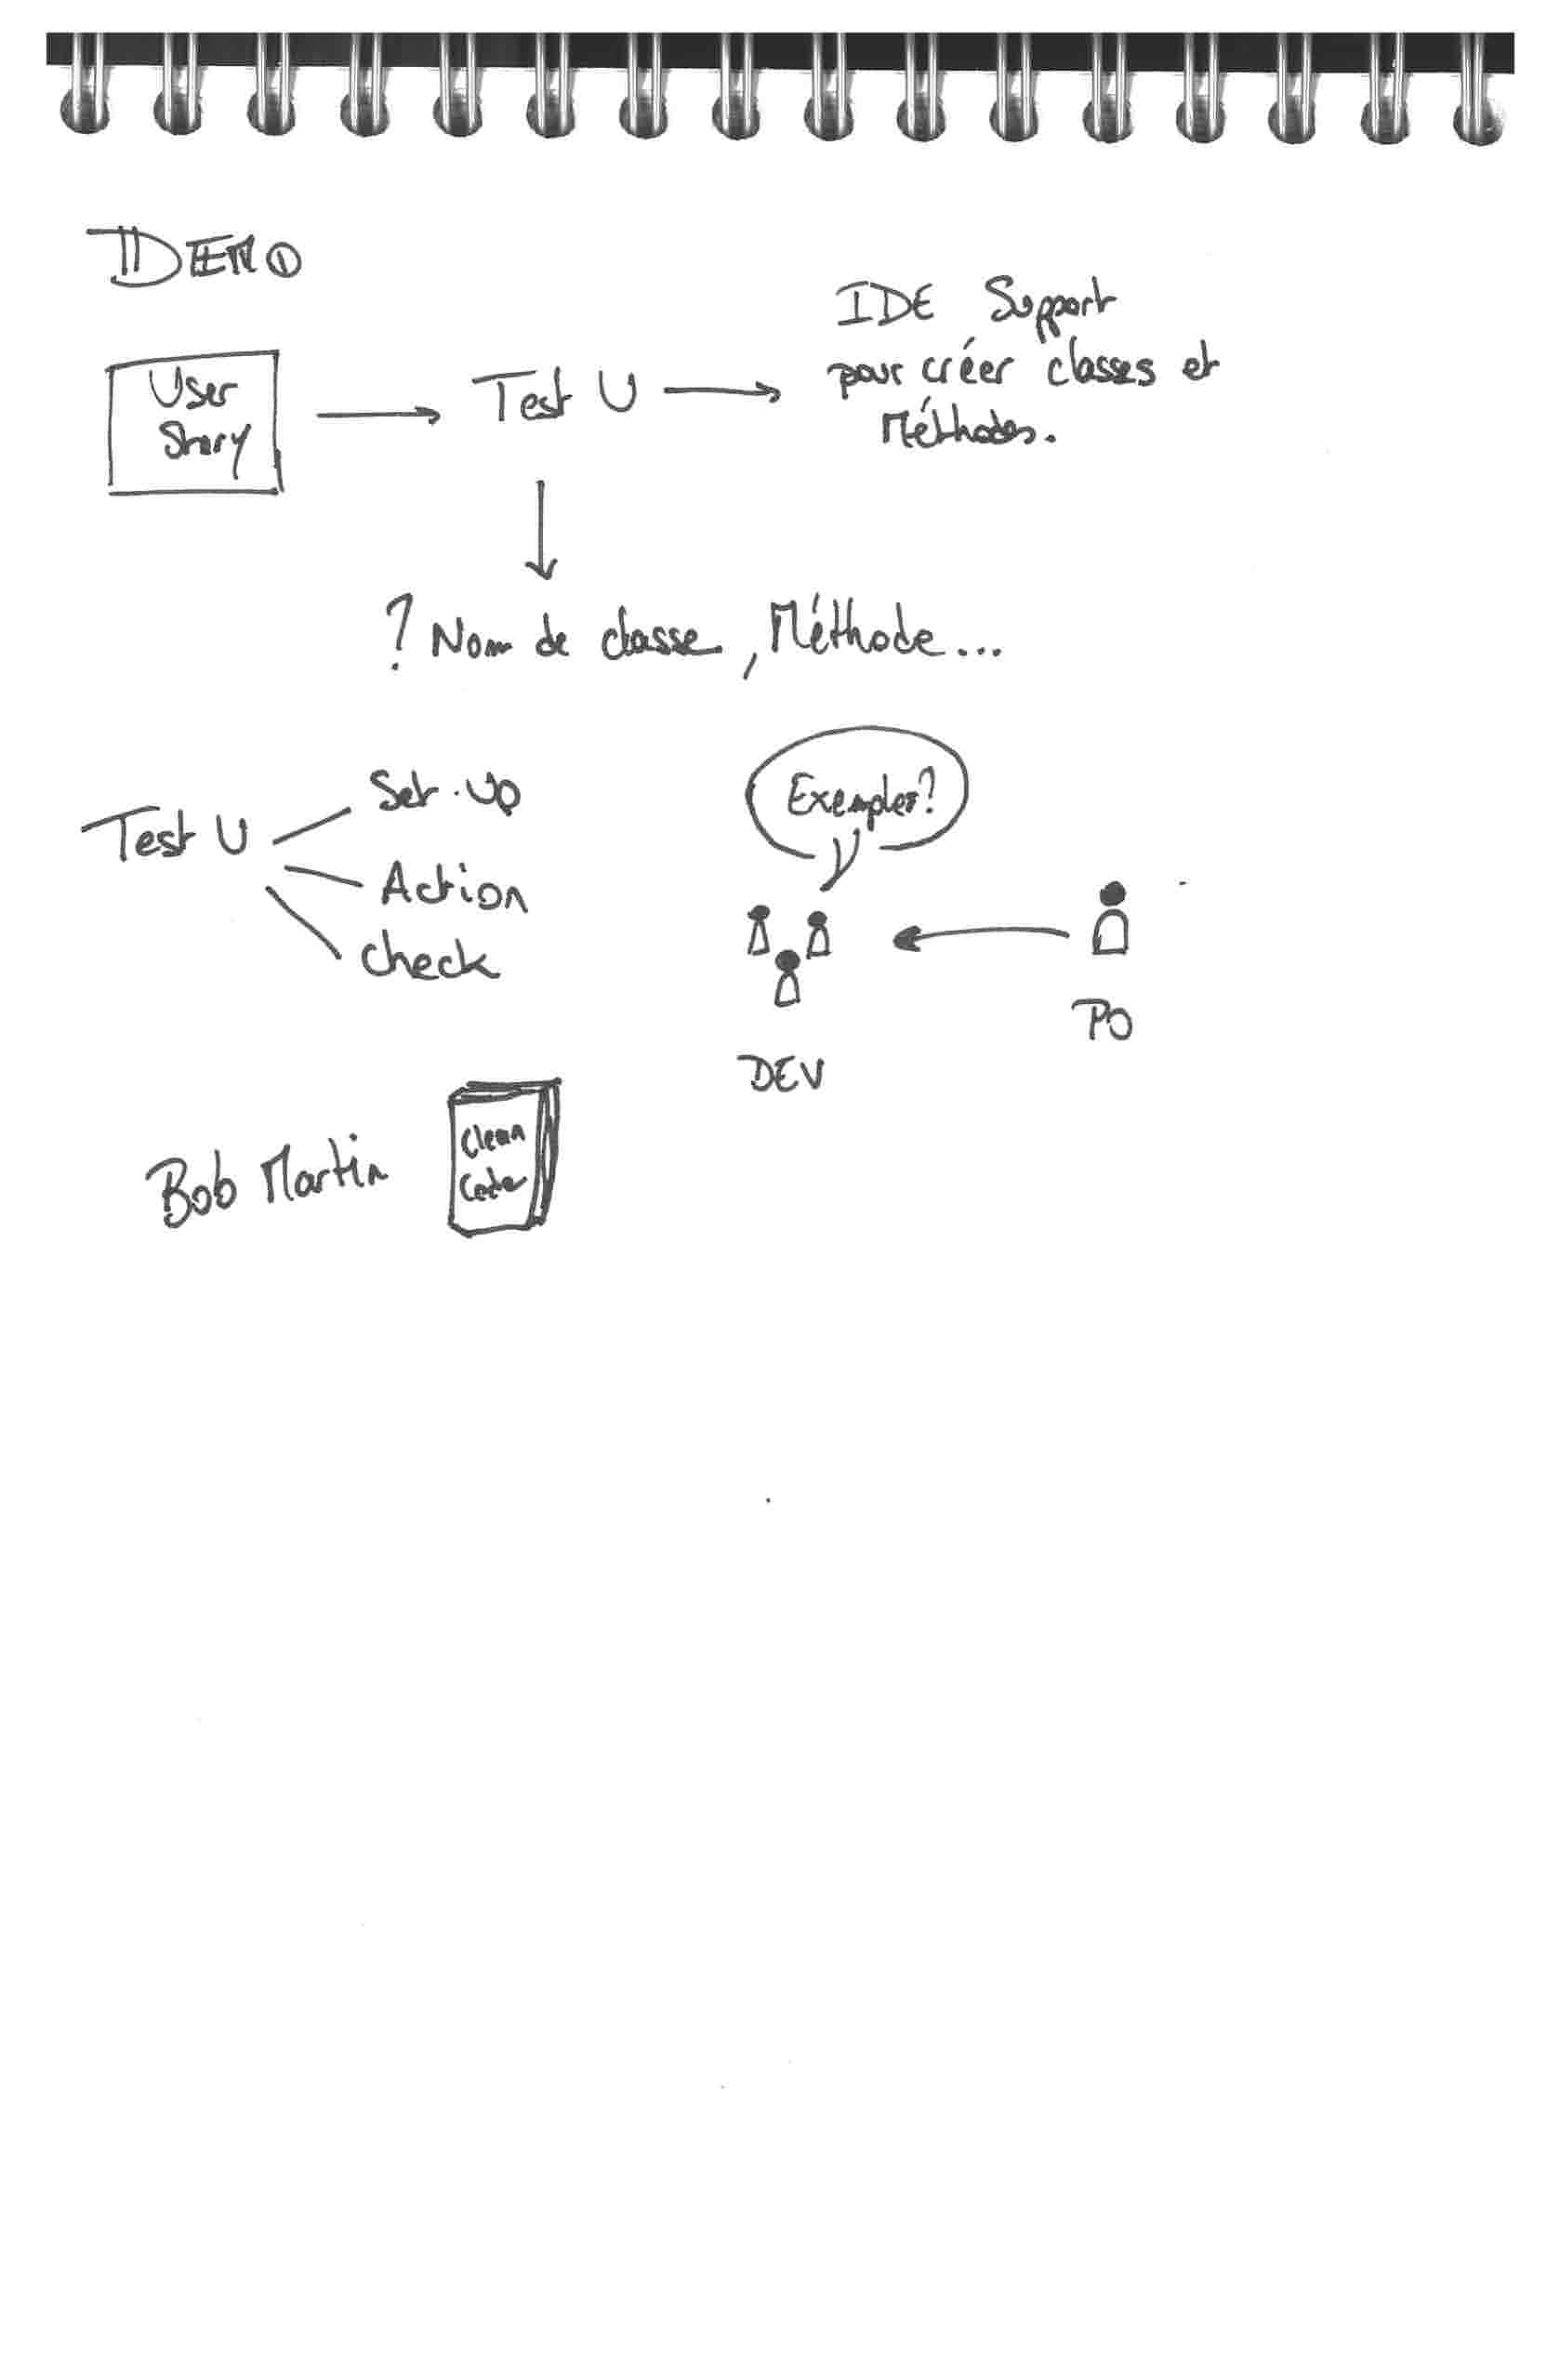 DEMO
User
Story
Test U
IDE Support
pour créer classes et
Méthodes.
? Nom de classe, Méthode...
Test U
Set-Up
Action
check
Exemples?
DEV
PO
Bob Martin
Clean
Code